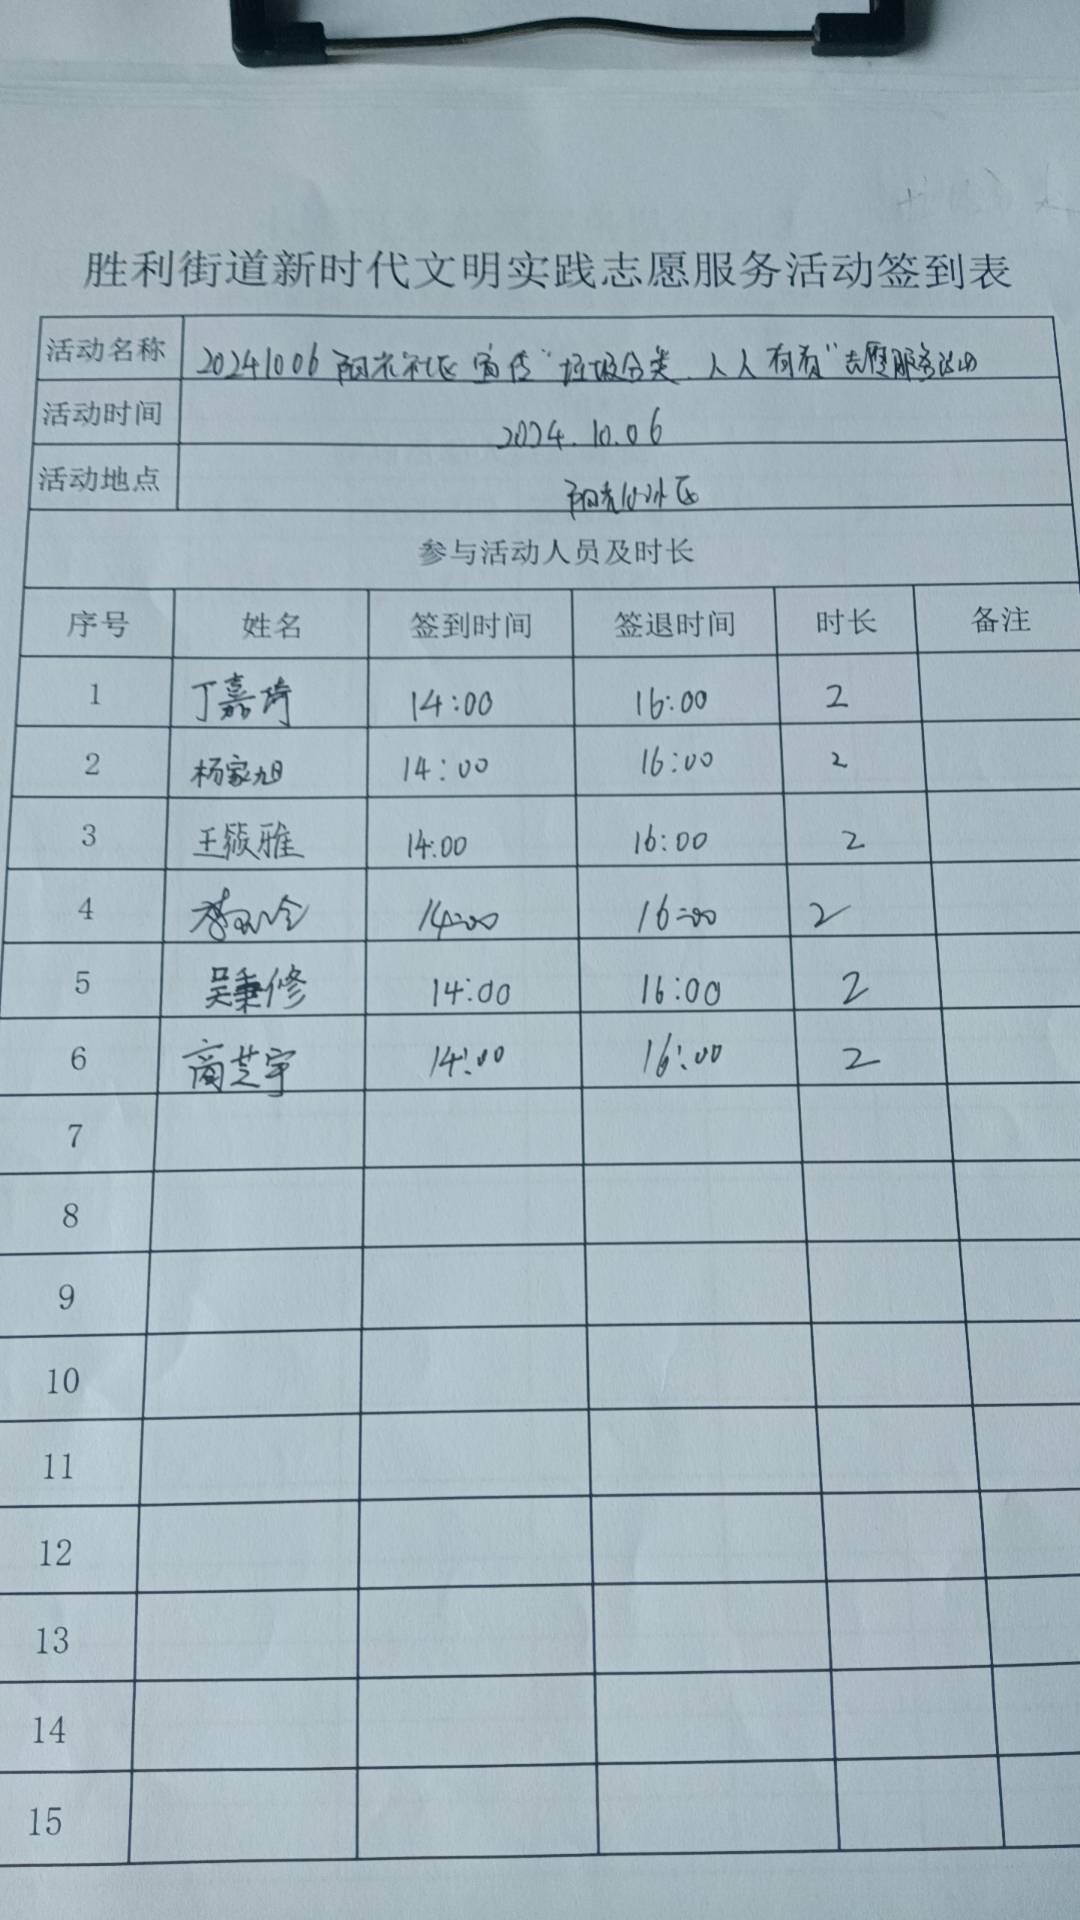 胜利街道新时代文明实践志愿服务活动签到表
活动名称 20241006 阳光社区宣传“垃圾分类、人人有责”志愿服务活动
活动时间 2024.10.06
活动地点 阳光社区
参与活动人员及时长
序号 姓名 签到时间 签退时间 时长 备注
1 丁嘉琦 14:00 16:00 2
2 杨家旭 14:00 16:00 2
3 王筱雅 14:00 16:00 2
4 14:00 16:00 2
5 吴秉修 14:00 16:00 2
6 商芝宇 14:00 16:00 2
7
8
9
10
11
12
13
14
15